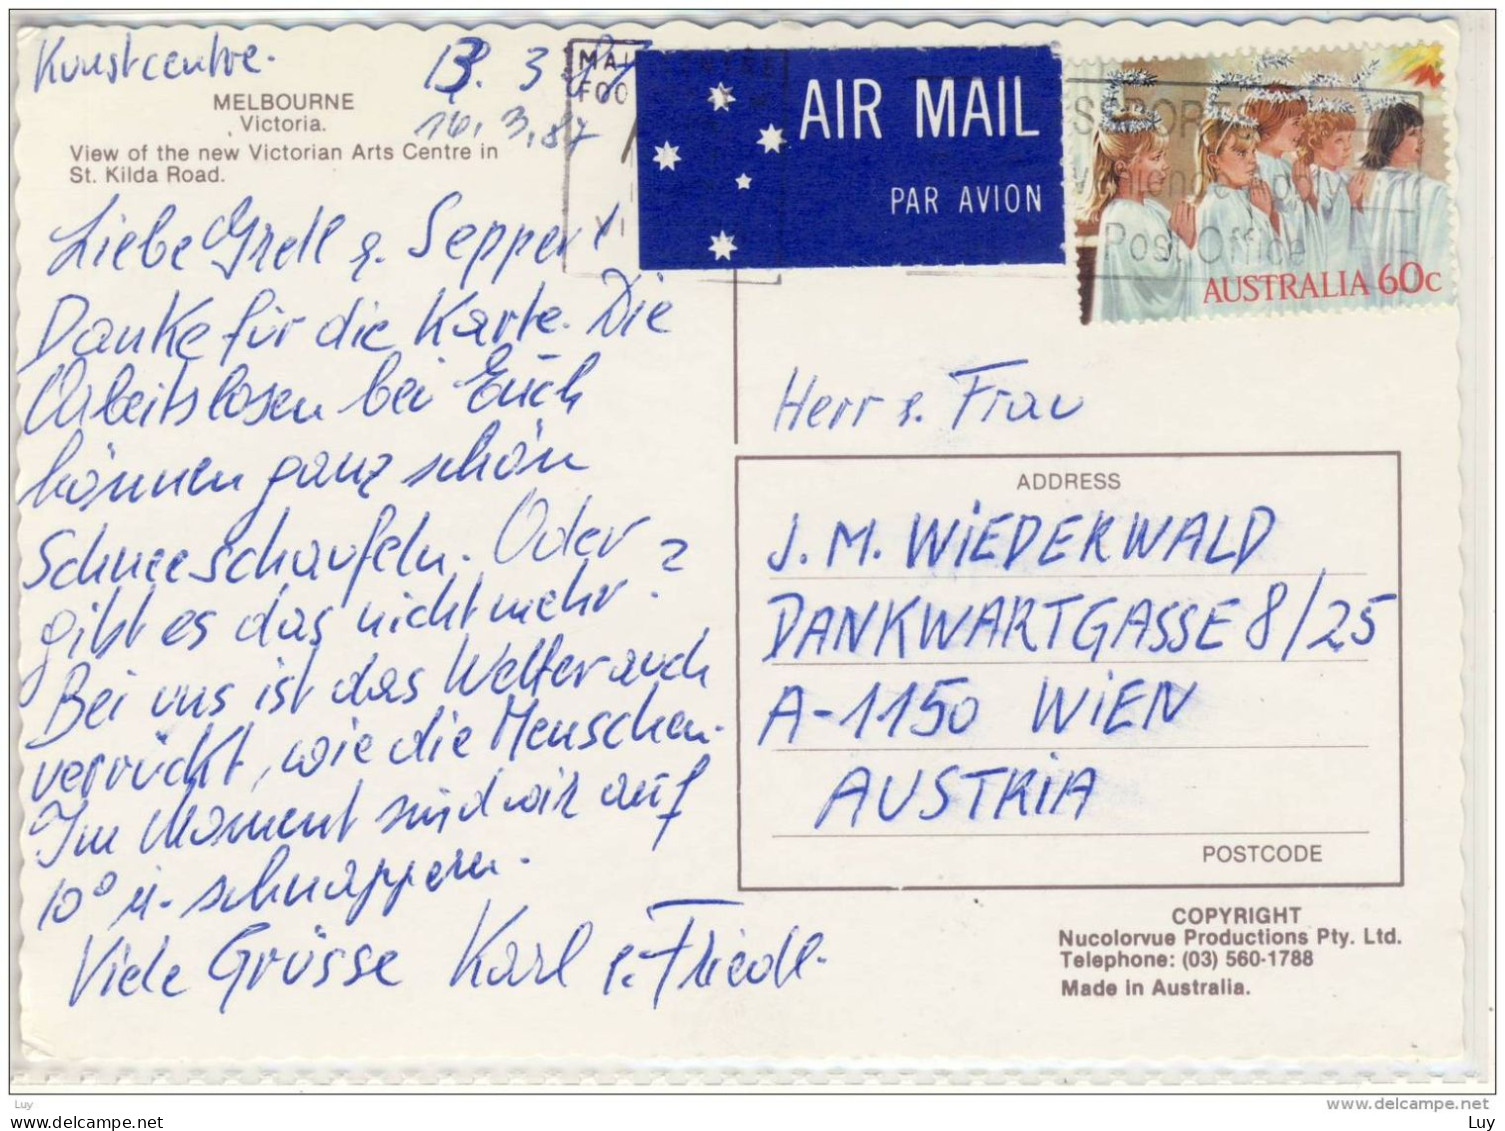 Kunstcentre.
13. 3. 87
16. 3. 87
MELBOURNE
Victoria.
View of the new Victorian Arts Centre in
St. Kilda Road.
Liebe Gretl u. Seppert
Danke für die Karte. Die
Arbeitslosen bei Euch
können ganz schön
Schneeschaufeln. Oder
gibt es das nicht mehr?
Bei uns ist das Wetter auch
verrückt, wie die Menschen.
Im Moment sind wir auf
10° u. schnappern.
Viele Grüsse Karl u. Friedl.
MAI
FOO
AIR MAIL
PAR AVION
SPORTS
Post Office
AUSTRALIA 60c
Herr u. Frau
ADDRESS
J. M. WiEDERWALD
DANKWARTGASSE 8/25
A-1150 WiEN
AUSTRiA
POSTCODE
COPYRIGHT
Nucolorvue Productions Pty. Ltd.
Telephone: (03) 560-1788
Made in Australia.
Luy
www.delcampe.net
Luy
www.delcampe.net
Luy